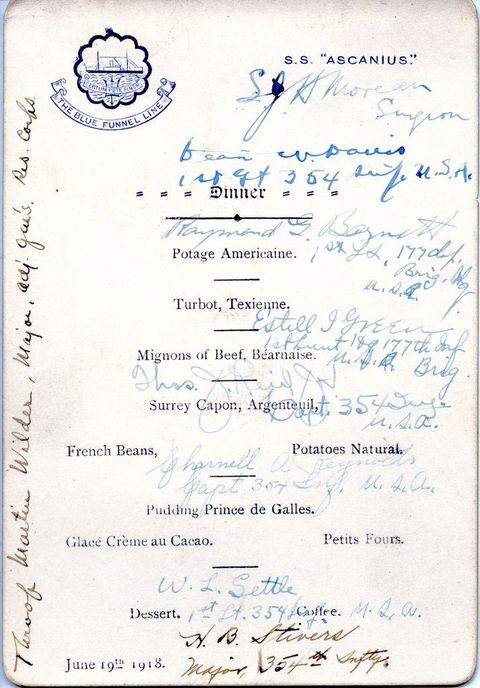 S.S. "ASCANIUS."
THE BLUE FUNNEL LINE
Surgeon
Dean W. Davis
1st Lt 354 Inf. U.S.A.
Dinner
Raymond G. Barnett
1st Lt, 177 Inf,
Brig. Hq
U.S.A.
Potage Americaine.
Turbot, Texienne.
Estill I Green
1st Lieut Hq 177th Inf
Brig.
U.S.A.
Mignons of Beef, Béarnaise.
Thos. J. Reid Jr
Capt. 354 Inf
U.S.A.
Surrey Capon, Argenteuil,
French Beans, Potatoes Natural.
Charnell A. Reynolds
Capt 354 Inf. U.S.A.
Pudding Prince de Galles.
Glacé Crème au Cacao. Petits Fours.
W. L. Settle
1st Lt. 354 Inf. U.S.A.
Dessert. Coffee.
H. B. Stivers
Major, 354th Infty.
June 19th 1918.
Throop Martin Wilder, Major, Adj. Gen's Res. Corps.